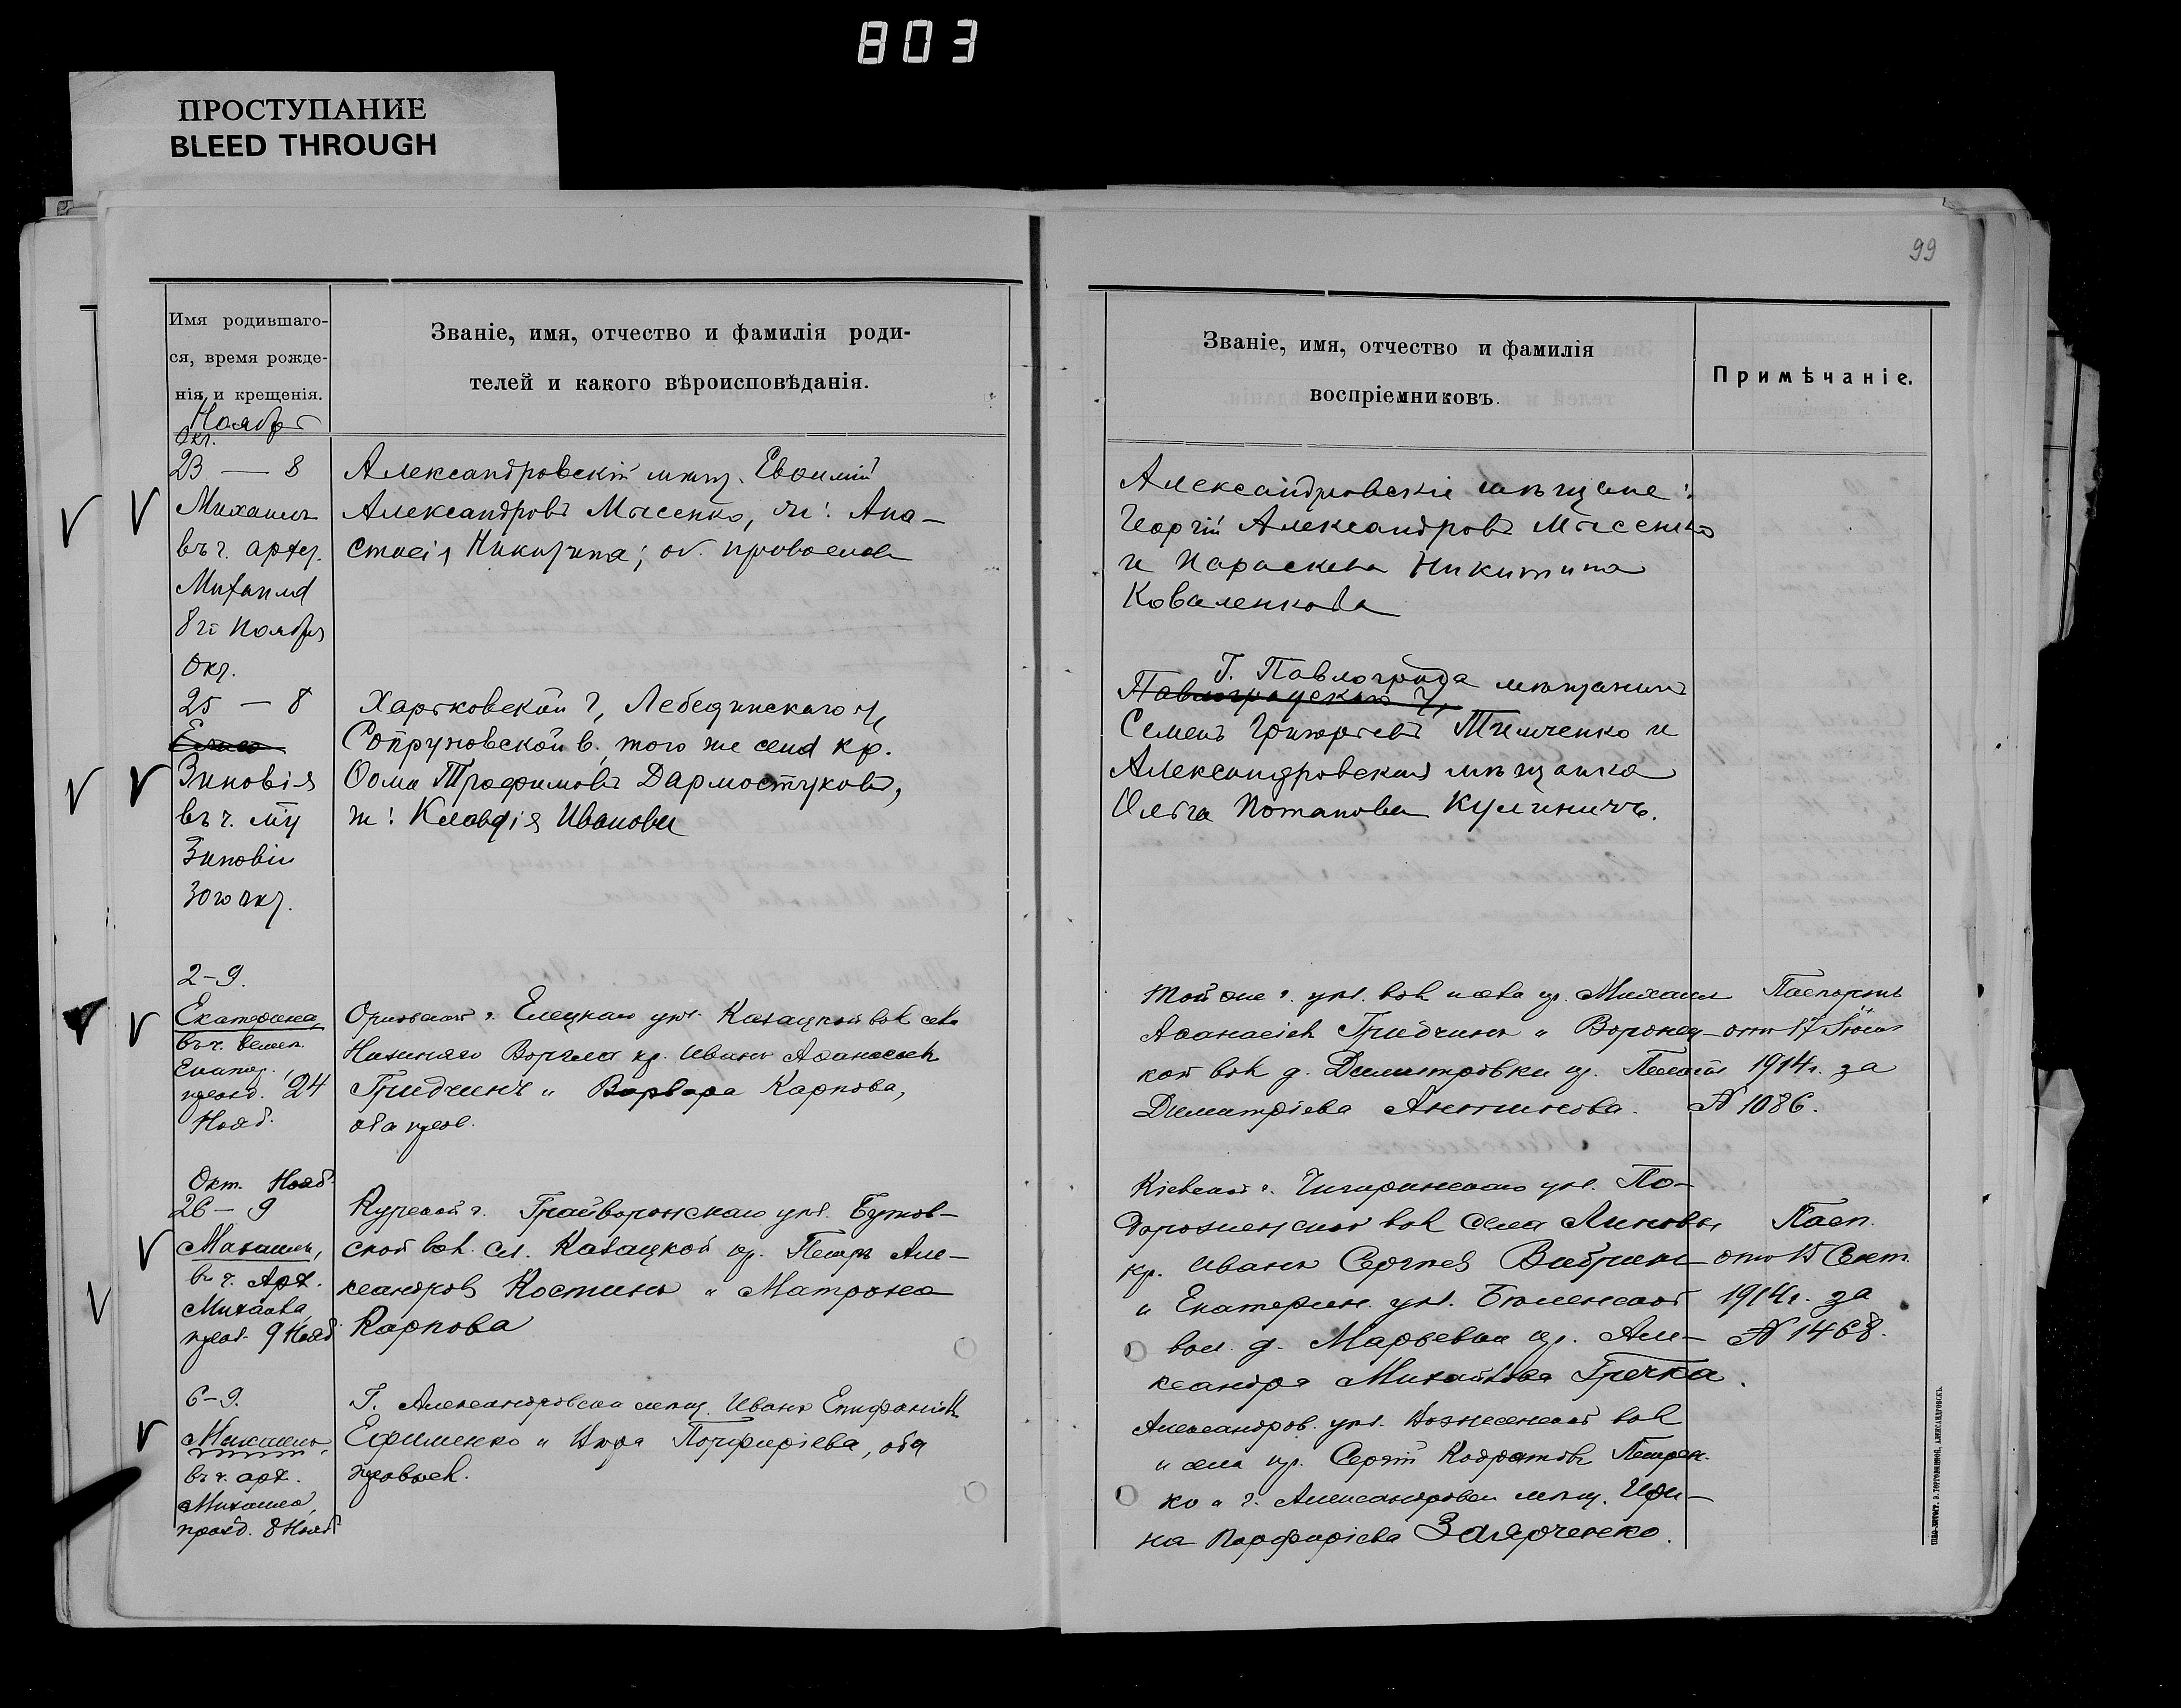 803
ПРОСТУПАНИЕ
BLEED THROUGH
99
Имя родившаго-
ся, время рожде-
нія и крещенія.
Званіе, имя, отчество и фамилія роди-
телей и какого вѣроисповѣданія.
Званіе, имя, отчество и фамилія
воспріемниковъ.
Примѣчаніе.
Ноябрь
Окт.
23 — 8
Михаилъ
въ ч. арх.
Михаила
8го Ноября
Александровскій мѣщ. Евѳимій
Александровъ Мысенко, ж: Ана-
стасія Никитина; об. православн
Александровскіе мѣщане:
Георгій Александровъ Мысенко
и Параскева Никитина
Коваленкова
Окт.
25 — 8
Зиновія
въ ч. мц
Зиновіи
30го окт.
Харьковской г, Лебединскаго у,
в. того же села кр.
Ѳома Трофимовъ Дармостуковъ,
ж: Клавдія Иванова
Г. Павлограда мѣщанинъ
Павлоградскаго у,
Семенъ Григорьевъ Тимченко и
Александровская мѣщанка
Ольга Потапова Кулиничъ.
2-9.
Екатерина,
въ ч. велик.
Екатер.
празд. 24
Нояб.
Орловской г. Елецкаго уѣз. Казацкой вол села
Нижняго Воргла кр. Иванъ Аѳанасьев
Гридчинъ и Варвара Карпова,
оба прав.
Той же г. уѣз. вол и села кр. Михаил
Аѳанасіев Гридчинъ и Воронец-
кой вол д. Димитровки кр. Пелагія
Димитріева Анопинова.
Паспортъ
от 17 Іюня
1914г. за
№ 1086.
Окт. Нояб.
26 — 9
Михаилъ,
въ ч. Арх.
Михаила,
празд. 9 Нояб
Курской г. Грайворонскаго уѣз.
ской вол. сл. Казацкой кр. Петръ Але-
ксандров Костинъ и Матрона
Карпова
Кіевской г. Чигиринскаго уѣз. По-
дорожненской вол села
кр. Иванъ Сергѣев
и Екатерин. уѣз.
вол. д. Марьевки кр. Але-
ксандра Михайлова Гречка.
Пасп.
от 15 Сент.
1914г. за
№ 1468.
6-9.
Михаилъ,
въ ч. арх.
Михаила,
празд. 8 Нояб
Г. Александровска мѣщ. Иванъ Епифаніев
Ефименко и Порфиріева, оба
правосл.
Александров. уѣз. Вознесенской вол
и села кр. Сергій Кодратов Петрен-
ко и г. Александровска мѣщ. Ири-
на Порфиріева